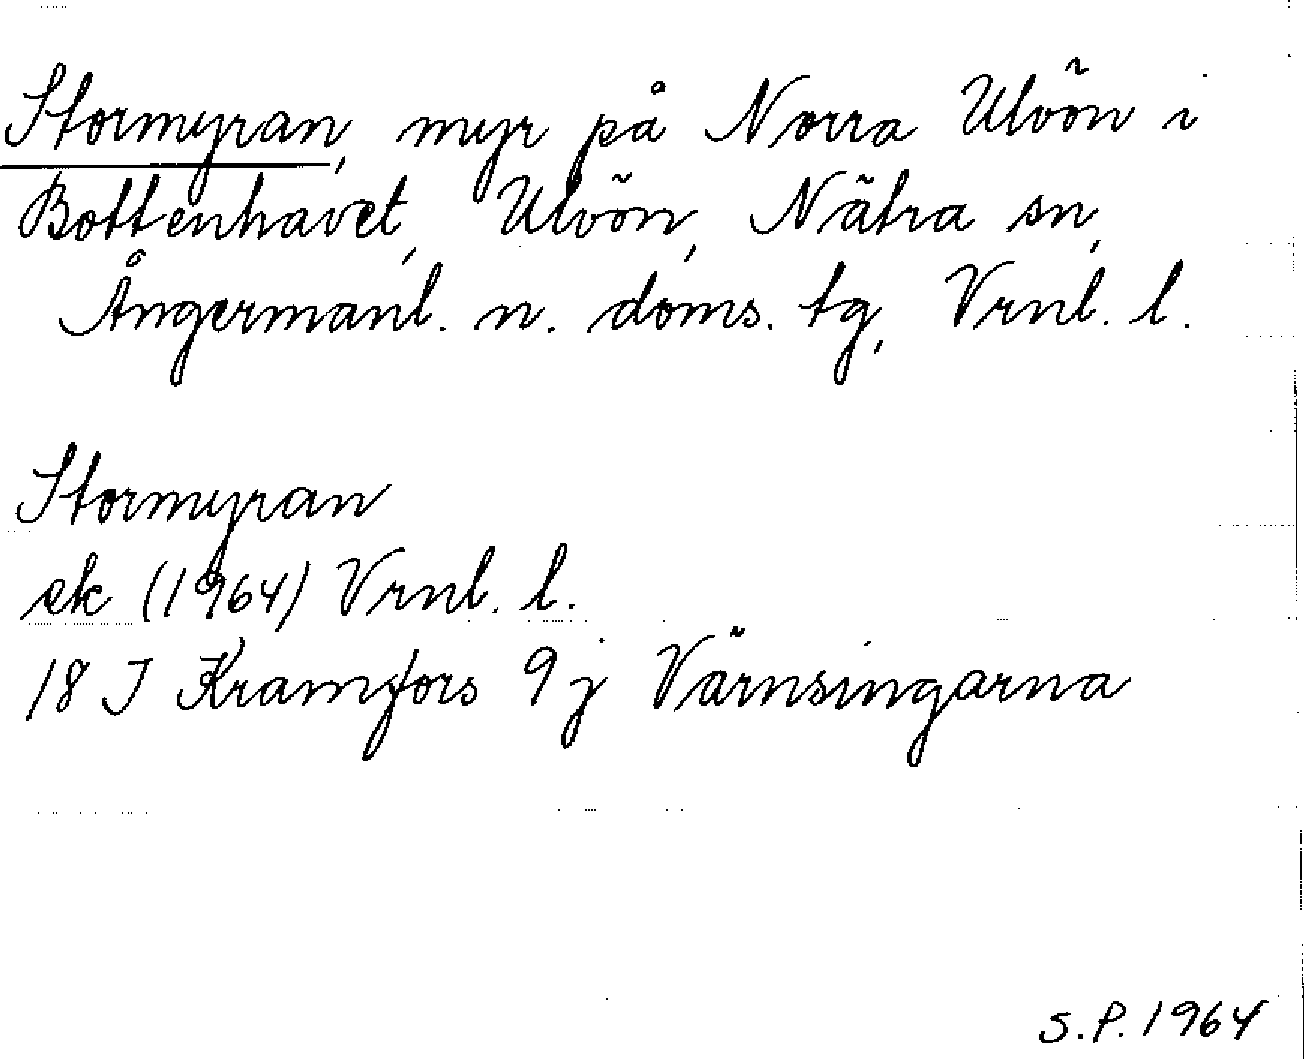 Stormyran, myr på Norra Ulvön i
Bottenhavet, Ulvön, Nätra sn,
Ångermanl. n. doms. tg, Vrnl. l.
Stormyran
ek (1964) Vrnl. l.
18 J Kramfors 9 j Värnsingarna
S.P. 1964